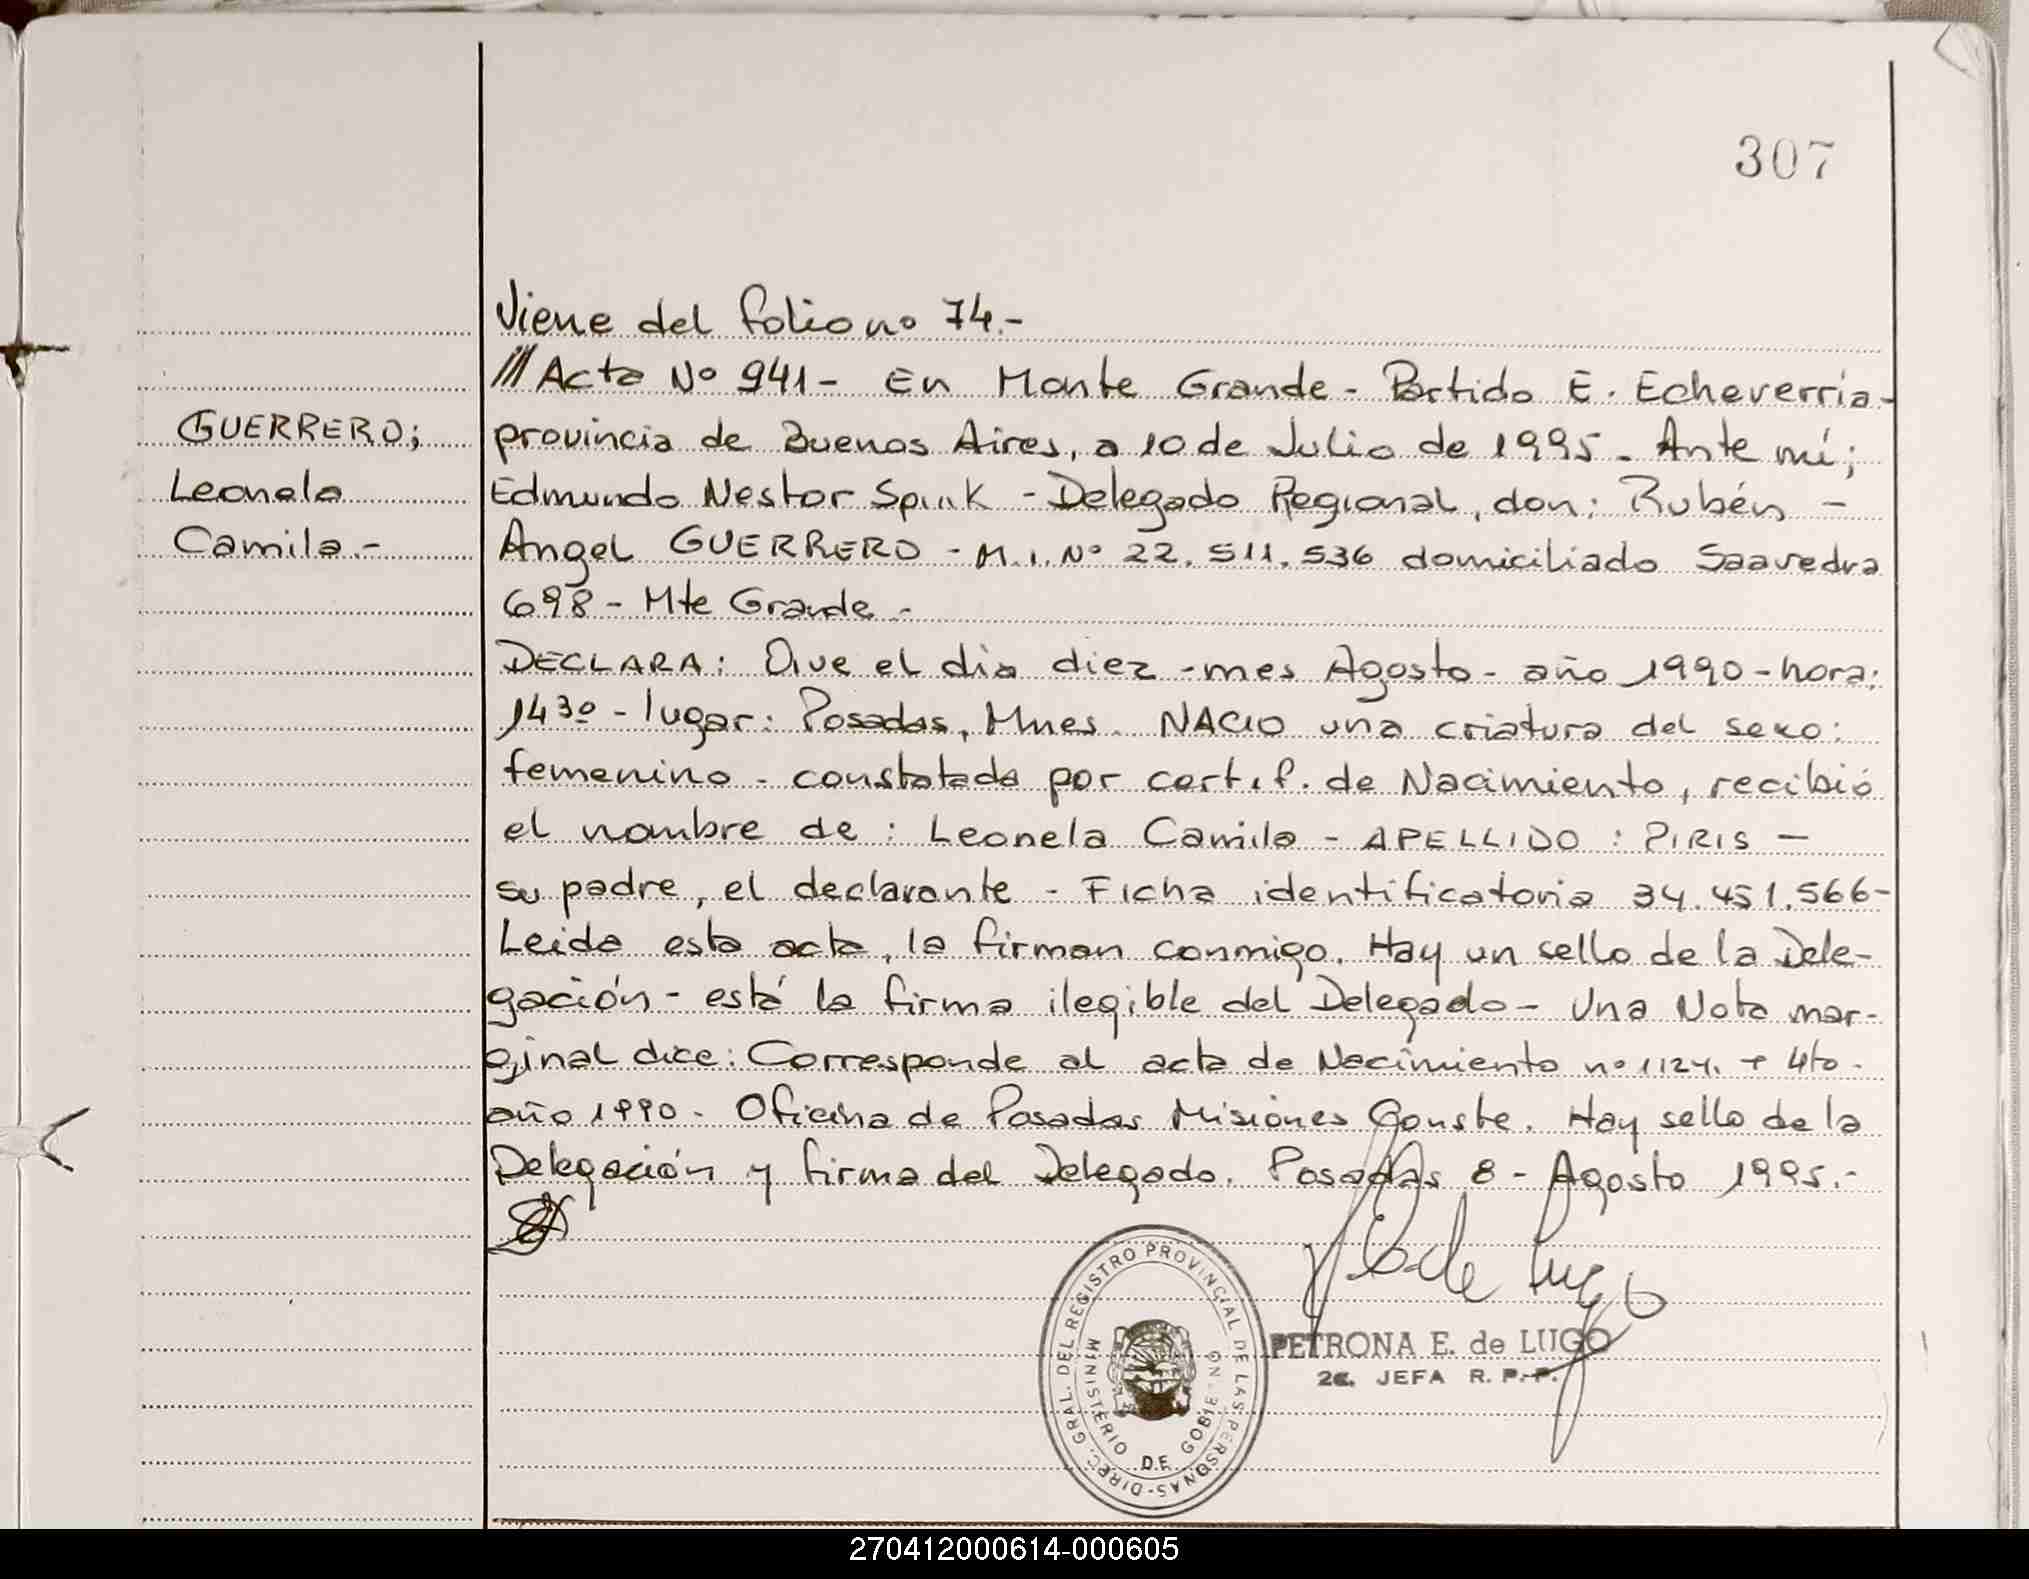 307
Viene del folio nº 74.-
/// Acta Nº 941 - En Monte Grande - Partido E. Echeverría -
GUERRERO;
provincia de Buenos Aires, a 10 de Julio de 1995 - Ante mí;
Leonela
Edmundo Nestor Spink - Delegado Regional, don: Rubén -
Camila.-
Angel GUERRERO - M.I. Nº 22.511.536 domiciliado Saavedra
698 - Mte Grande -
DECLARA: Que el día diez - mes Agosto - año 1990 - hora:
14 30 - lugar: Posadas, Mnes. NACIO una criatura del sexo:
femenino - constatado por certif. de Nacimiento, recibió
el nombre de: Leonela Camila - APELLIDO: PIRIS -
su padre, el declarante - Ficha identificatoria 34.451.566 -
Leida esta acta, la firman conmigo. Hay un sello de la Dele-
gación - está la firma ilegible del Delegado - Una Nota mar-
ginal dice: Corresponde al acta de Nacimiento nº 1124. T 4to -
año 1990 - Oficina de Posadas Misiones Conste. Hay sello de la
Delegación y firma del Delegado. Posadas 8 - Agosto 1995.-
DIREC. GRAL. DEL REGISTRO PROVINCIAL DE LAS PERSONAS
MINISTERIO DE GOBIERNO
de Lugo
PETRONA E. de LUGO
JEFA R. P. P.
270412000614-000605